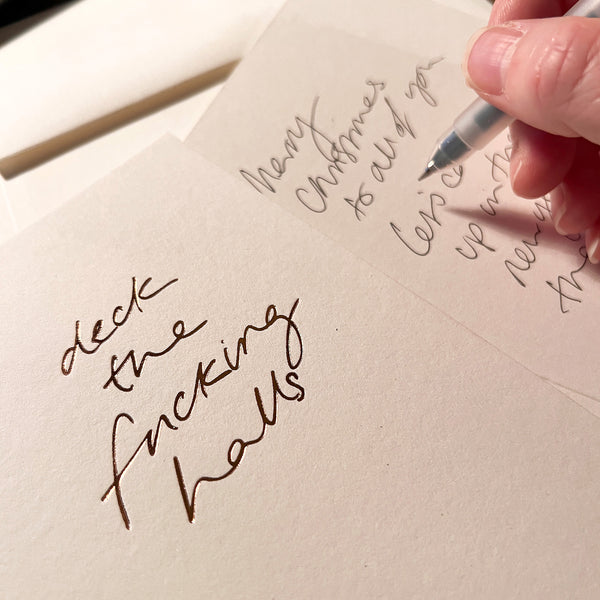 deck
the
fucking
halls
Merry
Christmas
to all of you
Let's
up in the
new